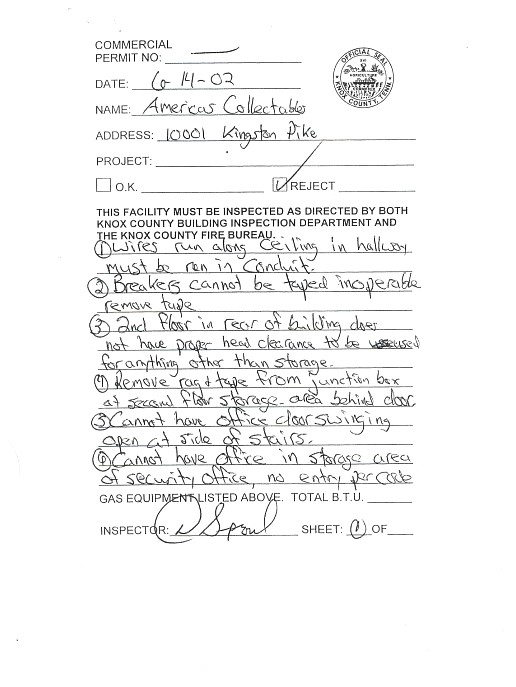 COMMERCIAL
PERMIT NO:
OFFICIAL SEAL
AGRICULTURE
COMMERCE
KNOX COUNTY, TENN.
DATE: 6-14-02
NAME: Americas Collectables
ADDRESS: 10001 Kingston Pike
PROJECT:
O.K. REJECT
THIS FACILITY MUST BE INSPECTED AS DIRECTED BY BOTH
KNOX COUNTY BUILDING INSPECTION DEPARTMENT AND
THE KNOX COUNTY FIRE BUREAU.
① Wires run along Ceiling in hallway
must be ran in Conduit.
② Breakers cannot be taped inoperable
remove tape
③ 2nd Floor in rear of building does
not have proper head clearance to be used
for anything other than storage.
④ Remove rag & tape from junction box
at second floor storage area behind door
⑤ Cannot have office door swinging
open at side of stairs.
⑥ Cannot have office in storage area
of security office, no entry per code
GAS EQUIPMENT LISTED ABOVE. TOTAL B.T.U.
INSPECTOR: D Sproul SHEET: ① OF